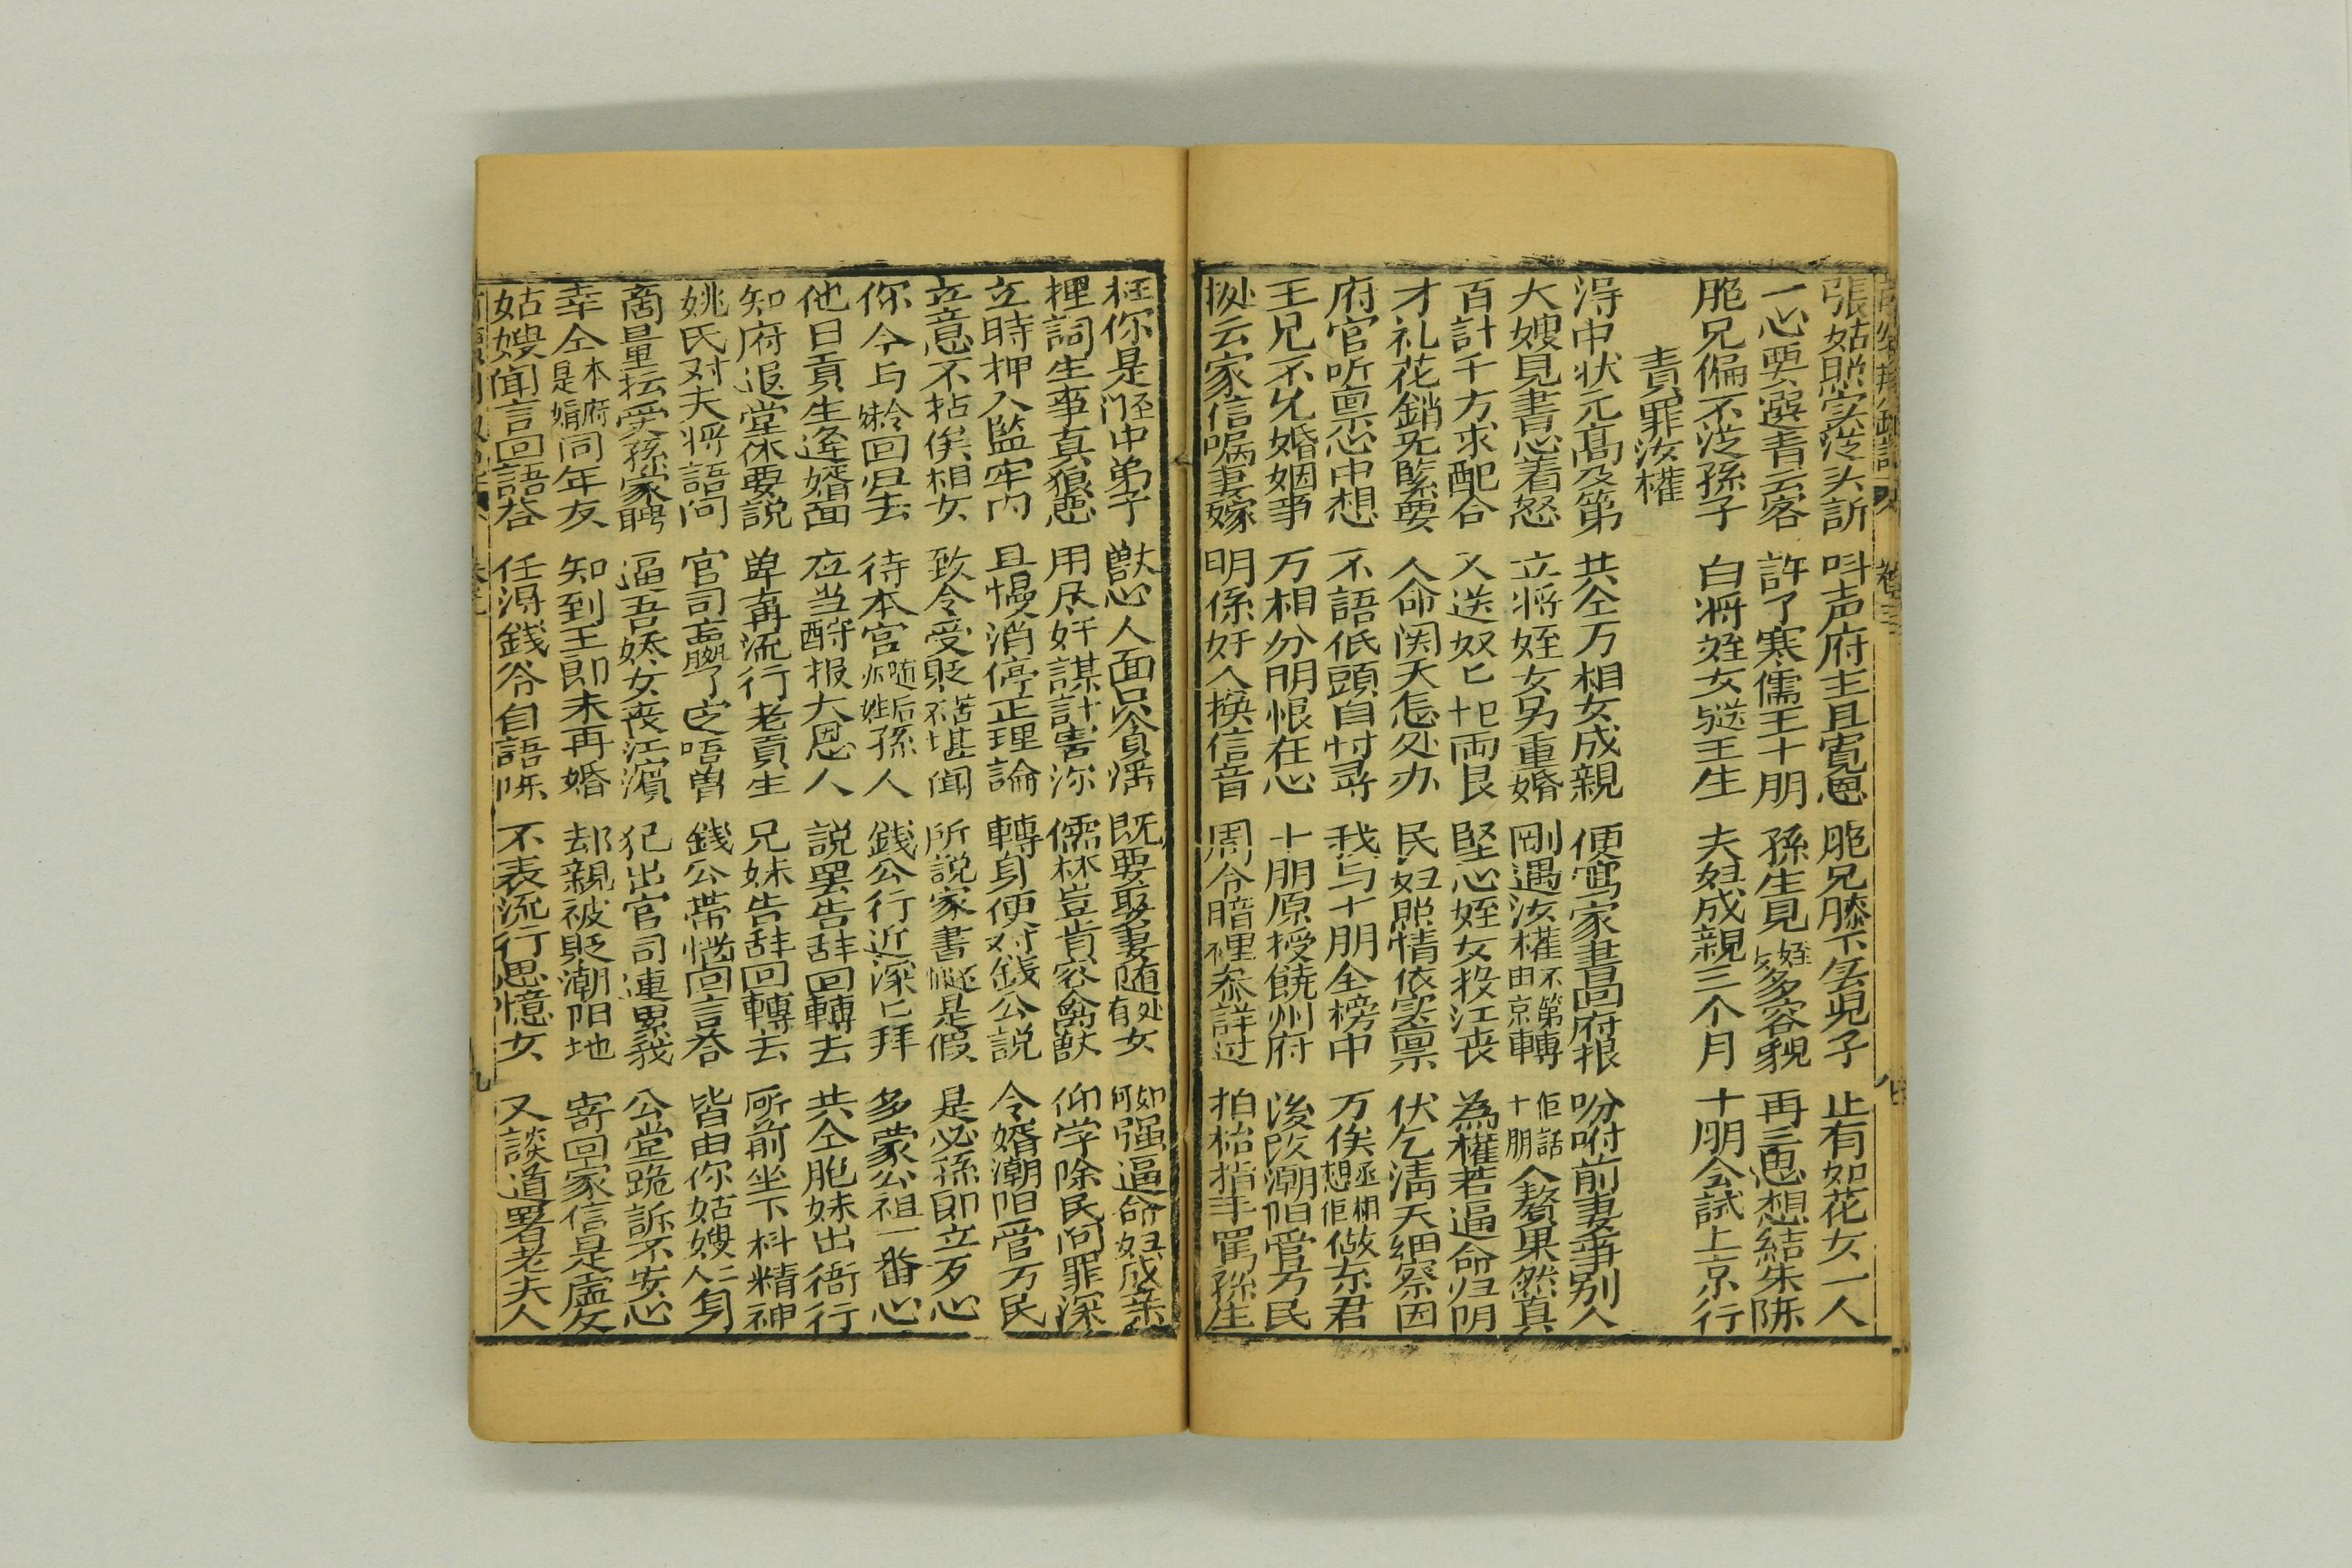 張姑照实从头訴 叫声府主且寛恩 胞兄膝下無児子 止有如花女一人
一心要選青云客 許了寒儒王十朋 孫生見姪多容貌 再三思想結朱陈
胞兄偏不从孫子 白将姪女送王生 夫妇成親三个月 十朋会試上京行
責罪汝權
淂中状元髙及第 共仝万相女成親 便寫家書回府报 吩咐前妻爭别人
大嫂見書心着怒 立将姪女另重婚 剛遇汝權不第由京轉 佢話十朋入贅果然真
百計千方求配合 又送奴匕十両艮 堅心姪女投江丧 為權若逼命归阴
才礼花銷无緊要 人命関天怎処办 民妇照情依实禀 伏乞淸天細察因
府官听禀心中想 不語低頭自忖尋 我与十朋仝榜中 万俟丞相想佢做东君
王兄不允婚姻事 万相分明恨在心 十朋原授饒州府 後改潮陽管万民
处云家信嘱妻嫁 明係奸人換信音 周令暗裡参詳过 拍枱指手罵孫生
枉你是中弟子 獣心人面只貪淫 既要娶妻随处有女 如何强逼命妇成亲
捏詞生事真狼惡 用尽奸謀計害你 儒林豈肯容禽獣 仰学除民问罪深
立時押入監牢内 且慢消停正理論 轉身便对錢公説 令婿潮陽管万民
立意不拈俟相女 致令受貶苦不堪闻 所説家書是假 是必孫郎立歹心
你今与令妹回归去 待本官随后孫人 錢公行近深匕拜 多蒙公祖一番心
他日貢生逢婿面 应当酧报大恩人 説罢告辞回轉去 共仝胞妹出衙行
知府退堂休要説 卑再流行老貢生 兄妹告辞回轉去 所前坐下抖精神
姚氏对夫将語问 官司贏了定唔曽 錢公帶惱回言荅 皆由你姑嫂二人身
商量抎受孫家聘 逼吾嬌女丧江濱 犯出官司連累我 公堂跪訴不安心
幸仝本府是婿同年友 知到王郎未再婚 却親被貶潮阳地 寄回家信是虛文
姑嫂闻言回語荅 任淂錢爷自語 不表流行思憶女 又談道署老夫人